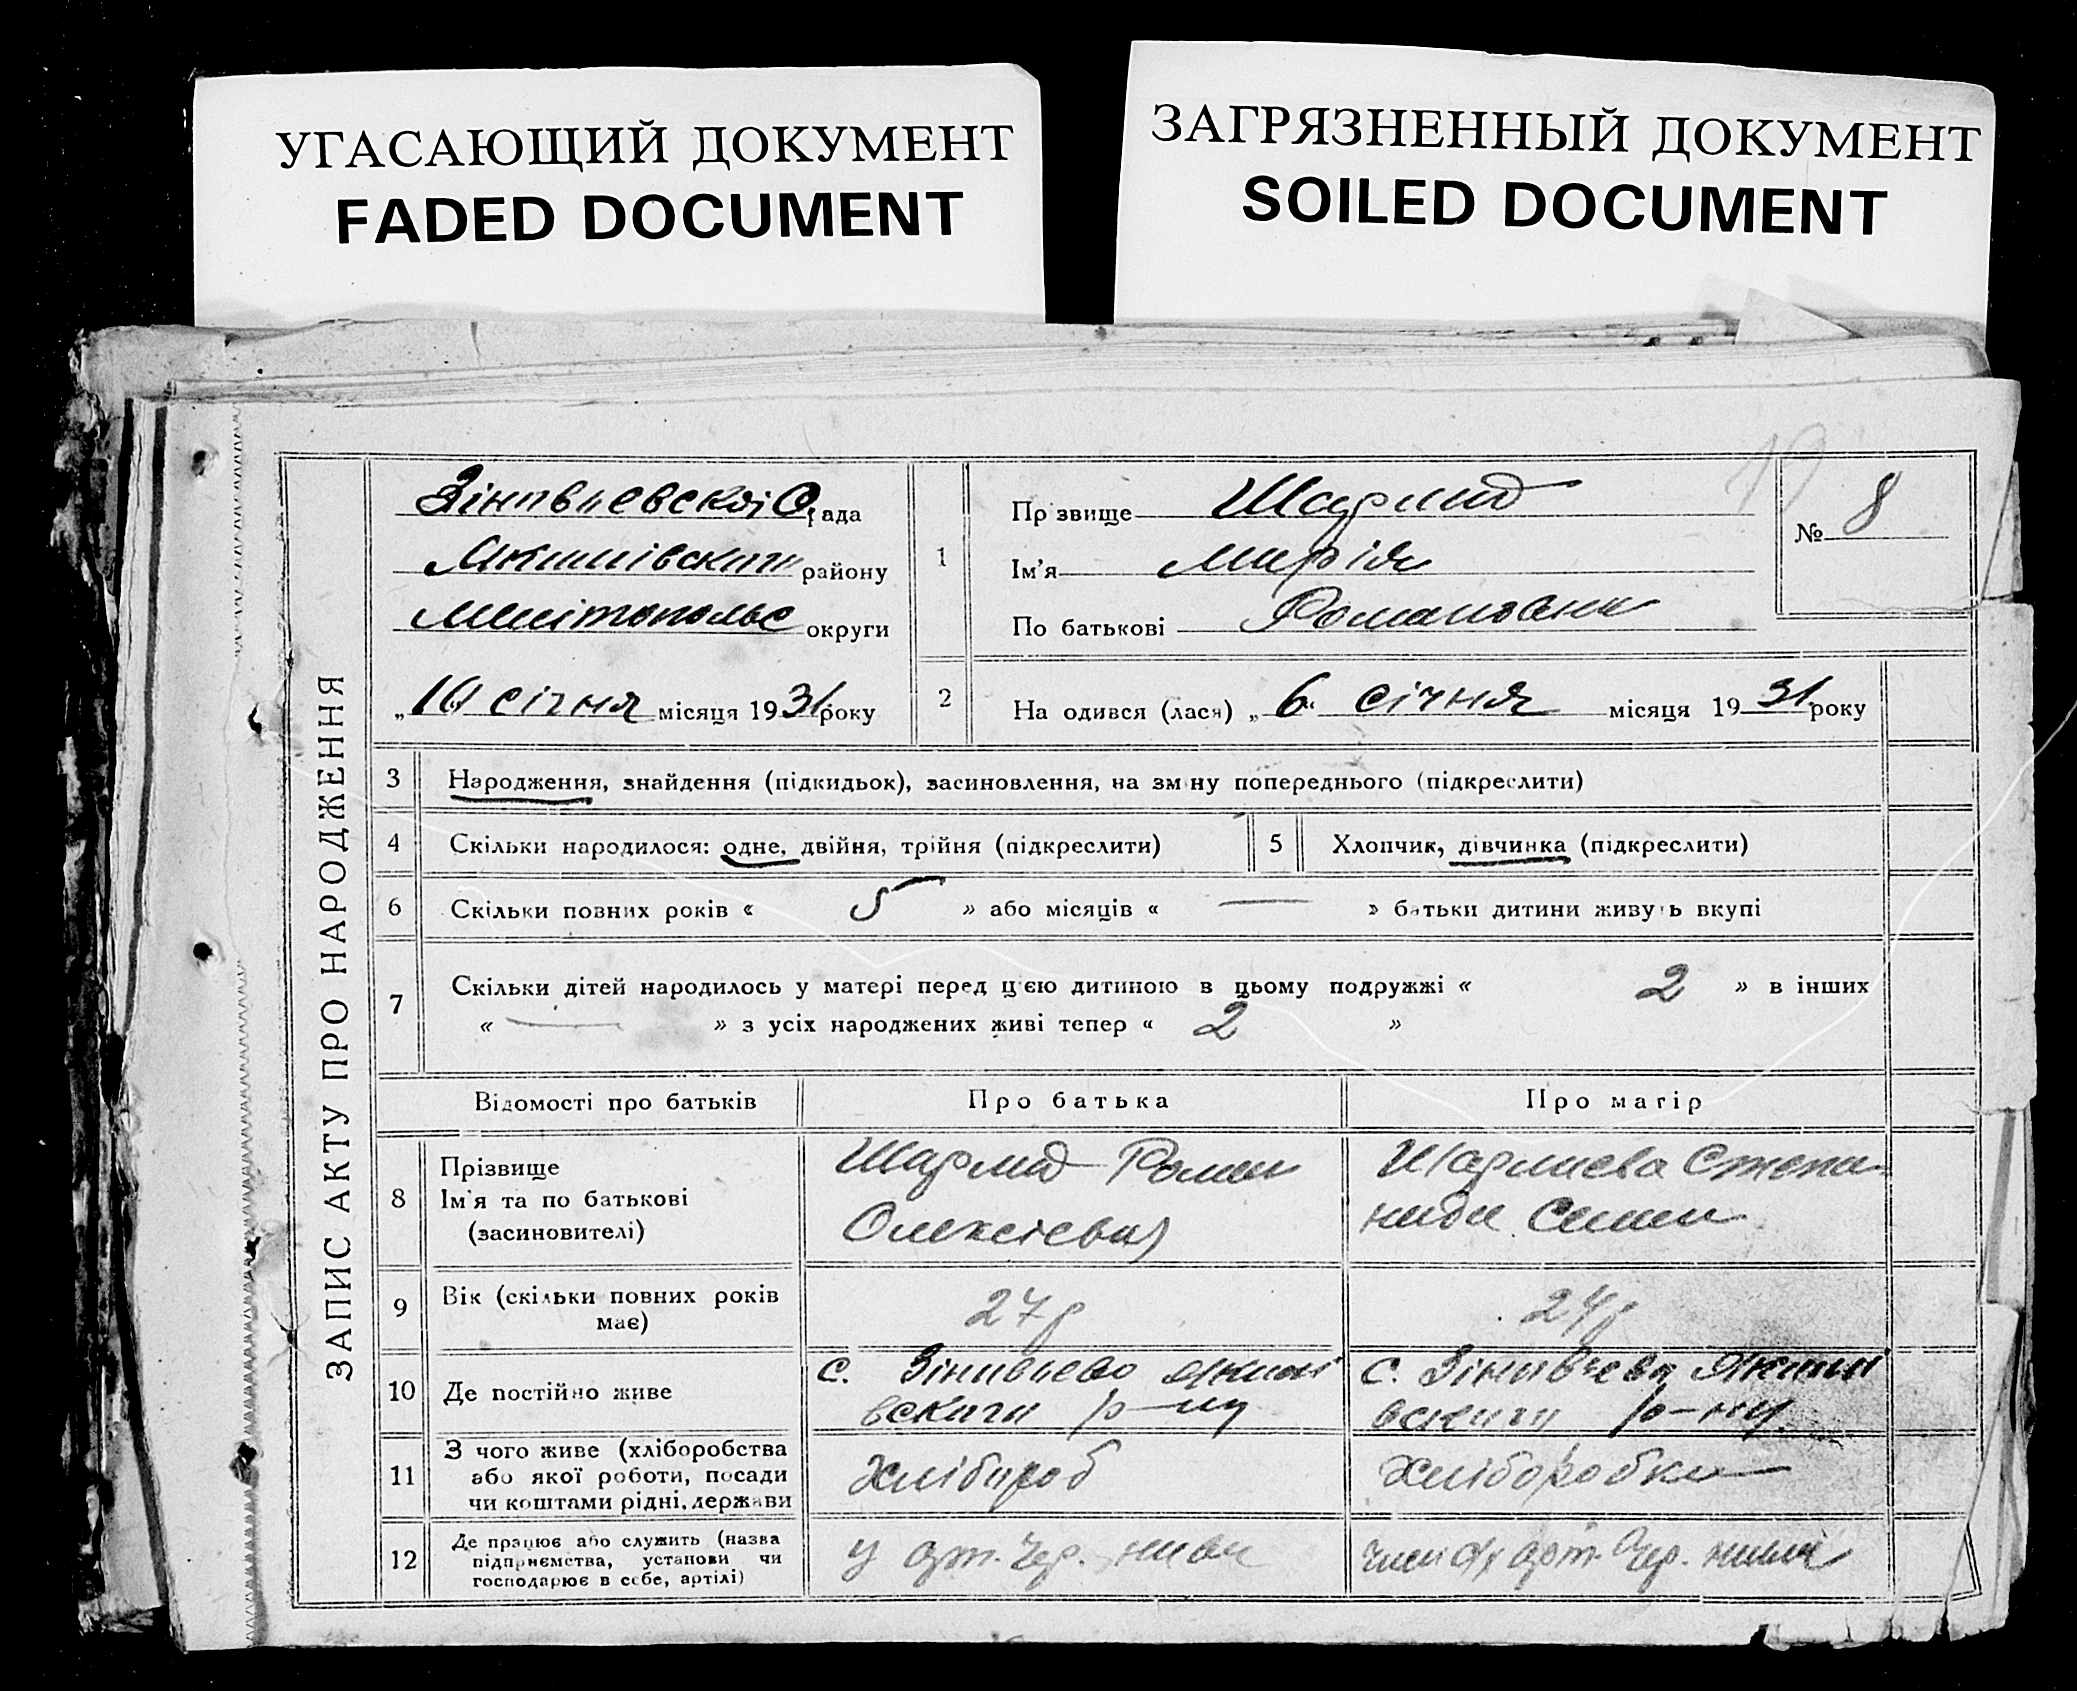 УГАСАЮЩИЙ ДОКУМЕНТ
FADED DOCUMENT
ЗАГРЯЗНЕННЫЙ ДОКУМЕНТ
SOILED DOCUMENT
19
ЗАПИС АКТУ ПРО НАРОДЖЕННЯ
Зіновьевської С рада
району
Мелітопольс округи
„10 січня місяця 1931 року
1
Прізвище
Ім'я Марія
По батькові Романовна
№ 8
2 На одився (лася) „6“ січня місяця 1931 року
3 Народження, знайдення (підкидьок), засиновлення, на зміну попереднього (підкреслити)
4 Скільки народилося: одне, двійня, трійня (підкреслити)
5 Хлопчик, дівчинка (підкреслити)
6 Скільки повних років « 5 » або місяців « — » батьки дитини живуть вкупі
7 Скільки дітей народилось у матері перед цією дитиною в цьому подружжі « 2 » в інших
« — » з усіх народжених живі тепер « 2 »
Відомості про батьків
Про батька
Про матір
8 Прізвище
Ім'я та по батькові
(засиновителі)
Роман
Олексієвич
Степа-
нида
9 Вік (скільки повних років
має)
27 р
24 р
10 Де постійно живе
с. Зіновьево Якимі
вского р-ну
с. Зіновьево Якимі
вского р-ну
11 З чого живе (хліборобства
або якої роботи, посади
чи коштами рідні, держави
Хлібороб
Хліборобка
12 Де працює або служить (назва
підприємства, установи чи
господарює в себе, артілі)
у арт. Чер. нива
арт. Чер. нива